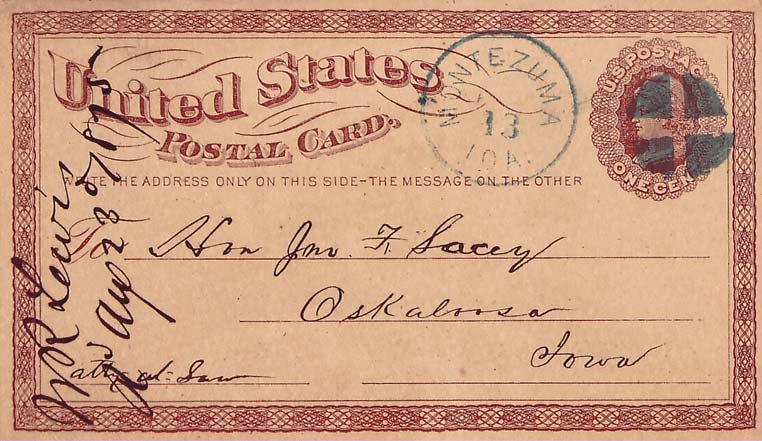 United States
Postal Card.
WRITE THE ADDRESS ONLY ON THIS SIDE—THE MESSAGE ON THE OTHER
U.S. POSTAGE
ONE CENT
MONTEZUMA
13
IOA.
To Hon Jno. F. Lacey
Oskaloosa
Iowa
atty-at-Law
W R Lewis